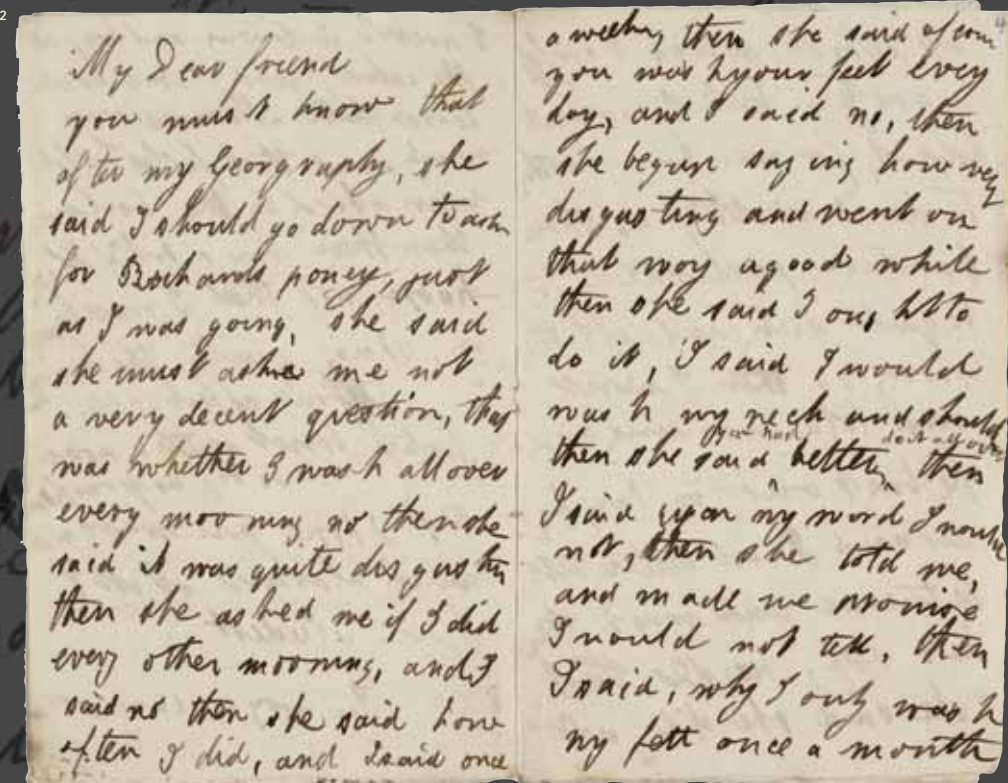 2
My Dear friend
you must know that
after my Georgraphy, she
said I should go down to ask
for Richards poney, just
as I was going, she said
she must aske me not
a very decent question, that
was whether I wash all over
every morning no then she
said it was quite disgusting
then she asked me if I did
every other mooning, and I
said no then she said how
often I did, and I said once
a week, then she said of course
you wash your feet every
day, and I said no, then
she begun saying how very
disgusting and went on
that way a good while
then she said I ought to
do it, I said I would
wash my neck and shoulders
then she said you had better do it all over, then
I said upon my word I would
not, then she told me,
and made me promise
I would not tell, then
I said, why I only wash
my fett once a month